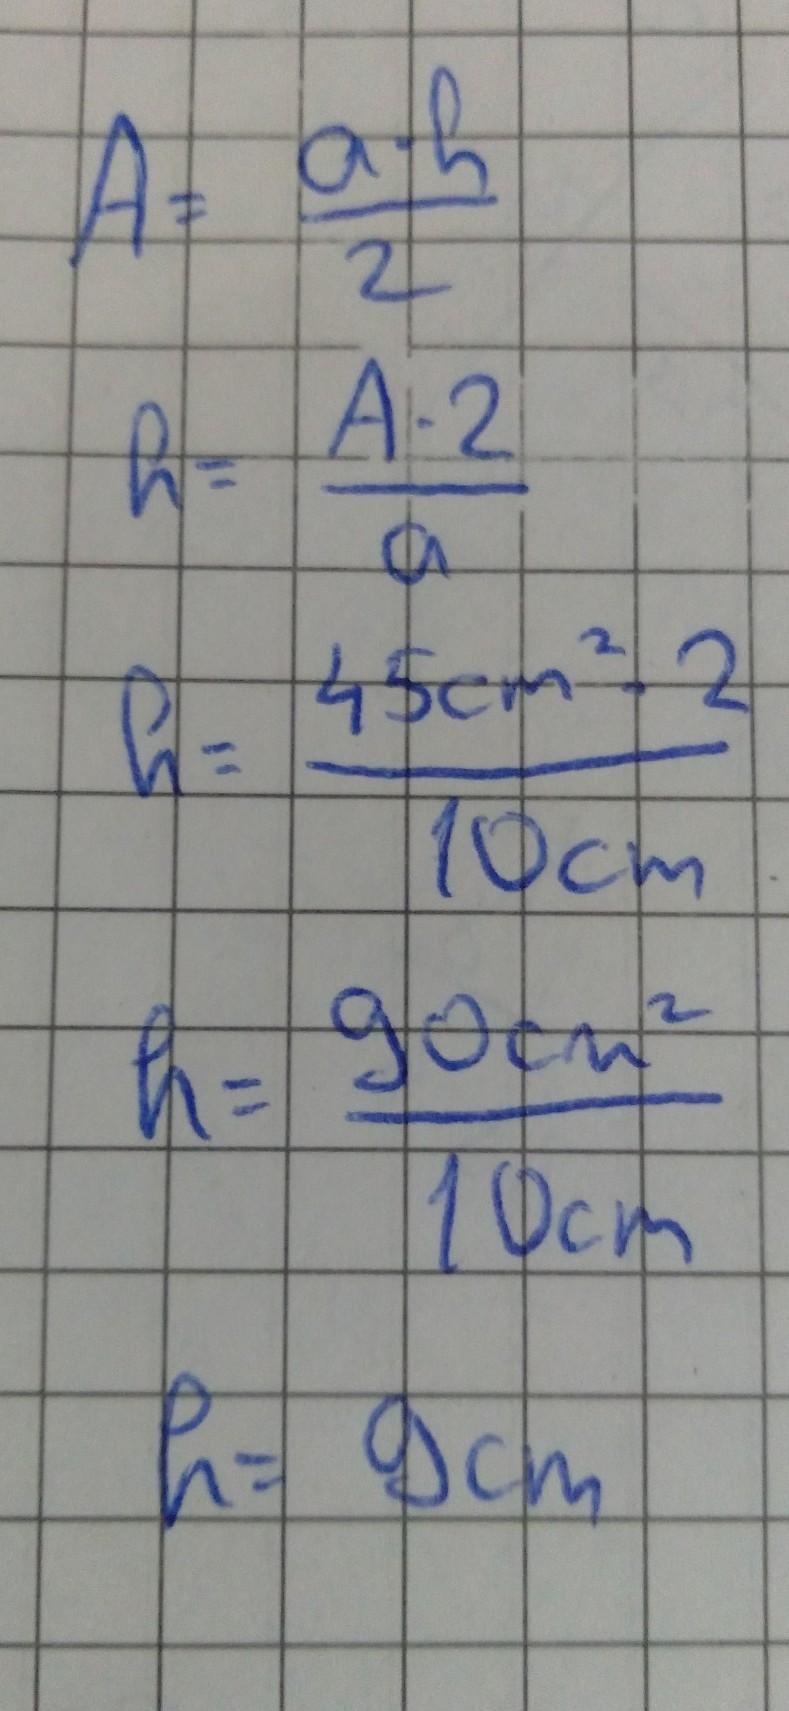 A = a·h / 2
h = A·2 / a
h = 45cm²·2 / 10cm
h = 90cm² / 10cm
h = 9cm